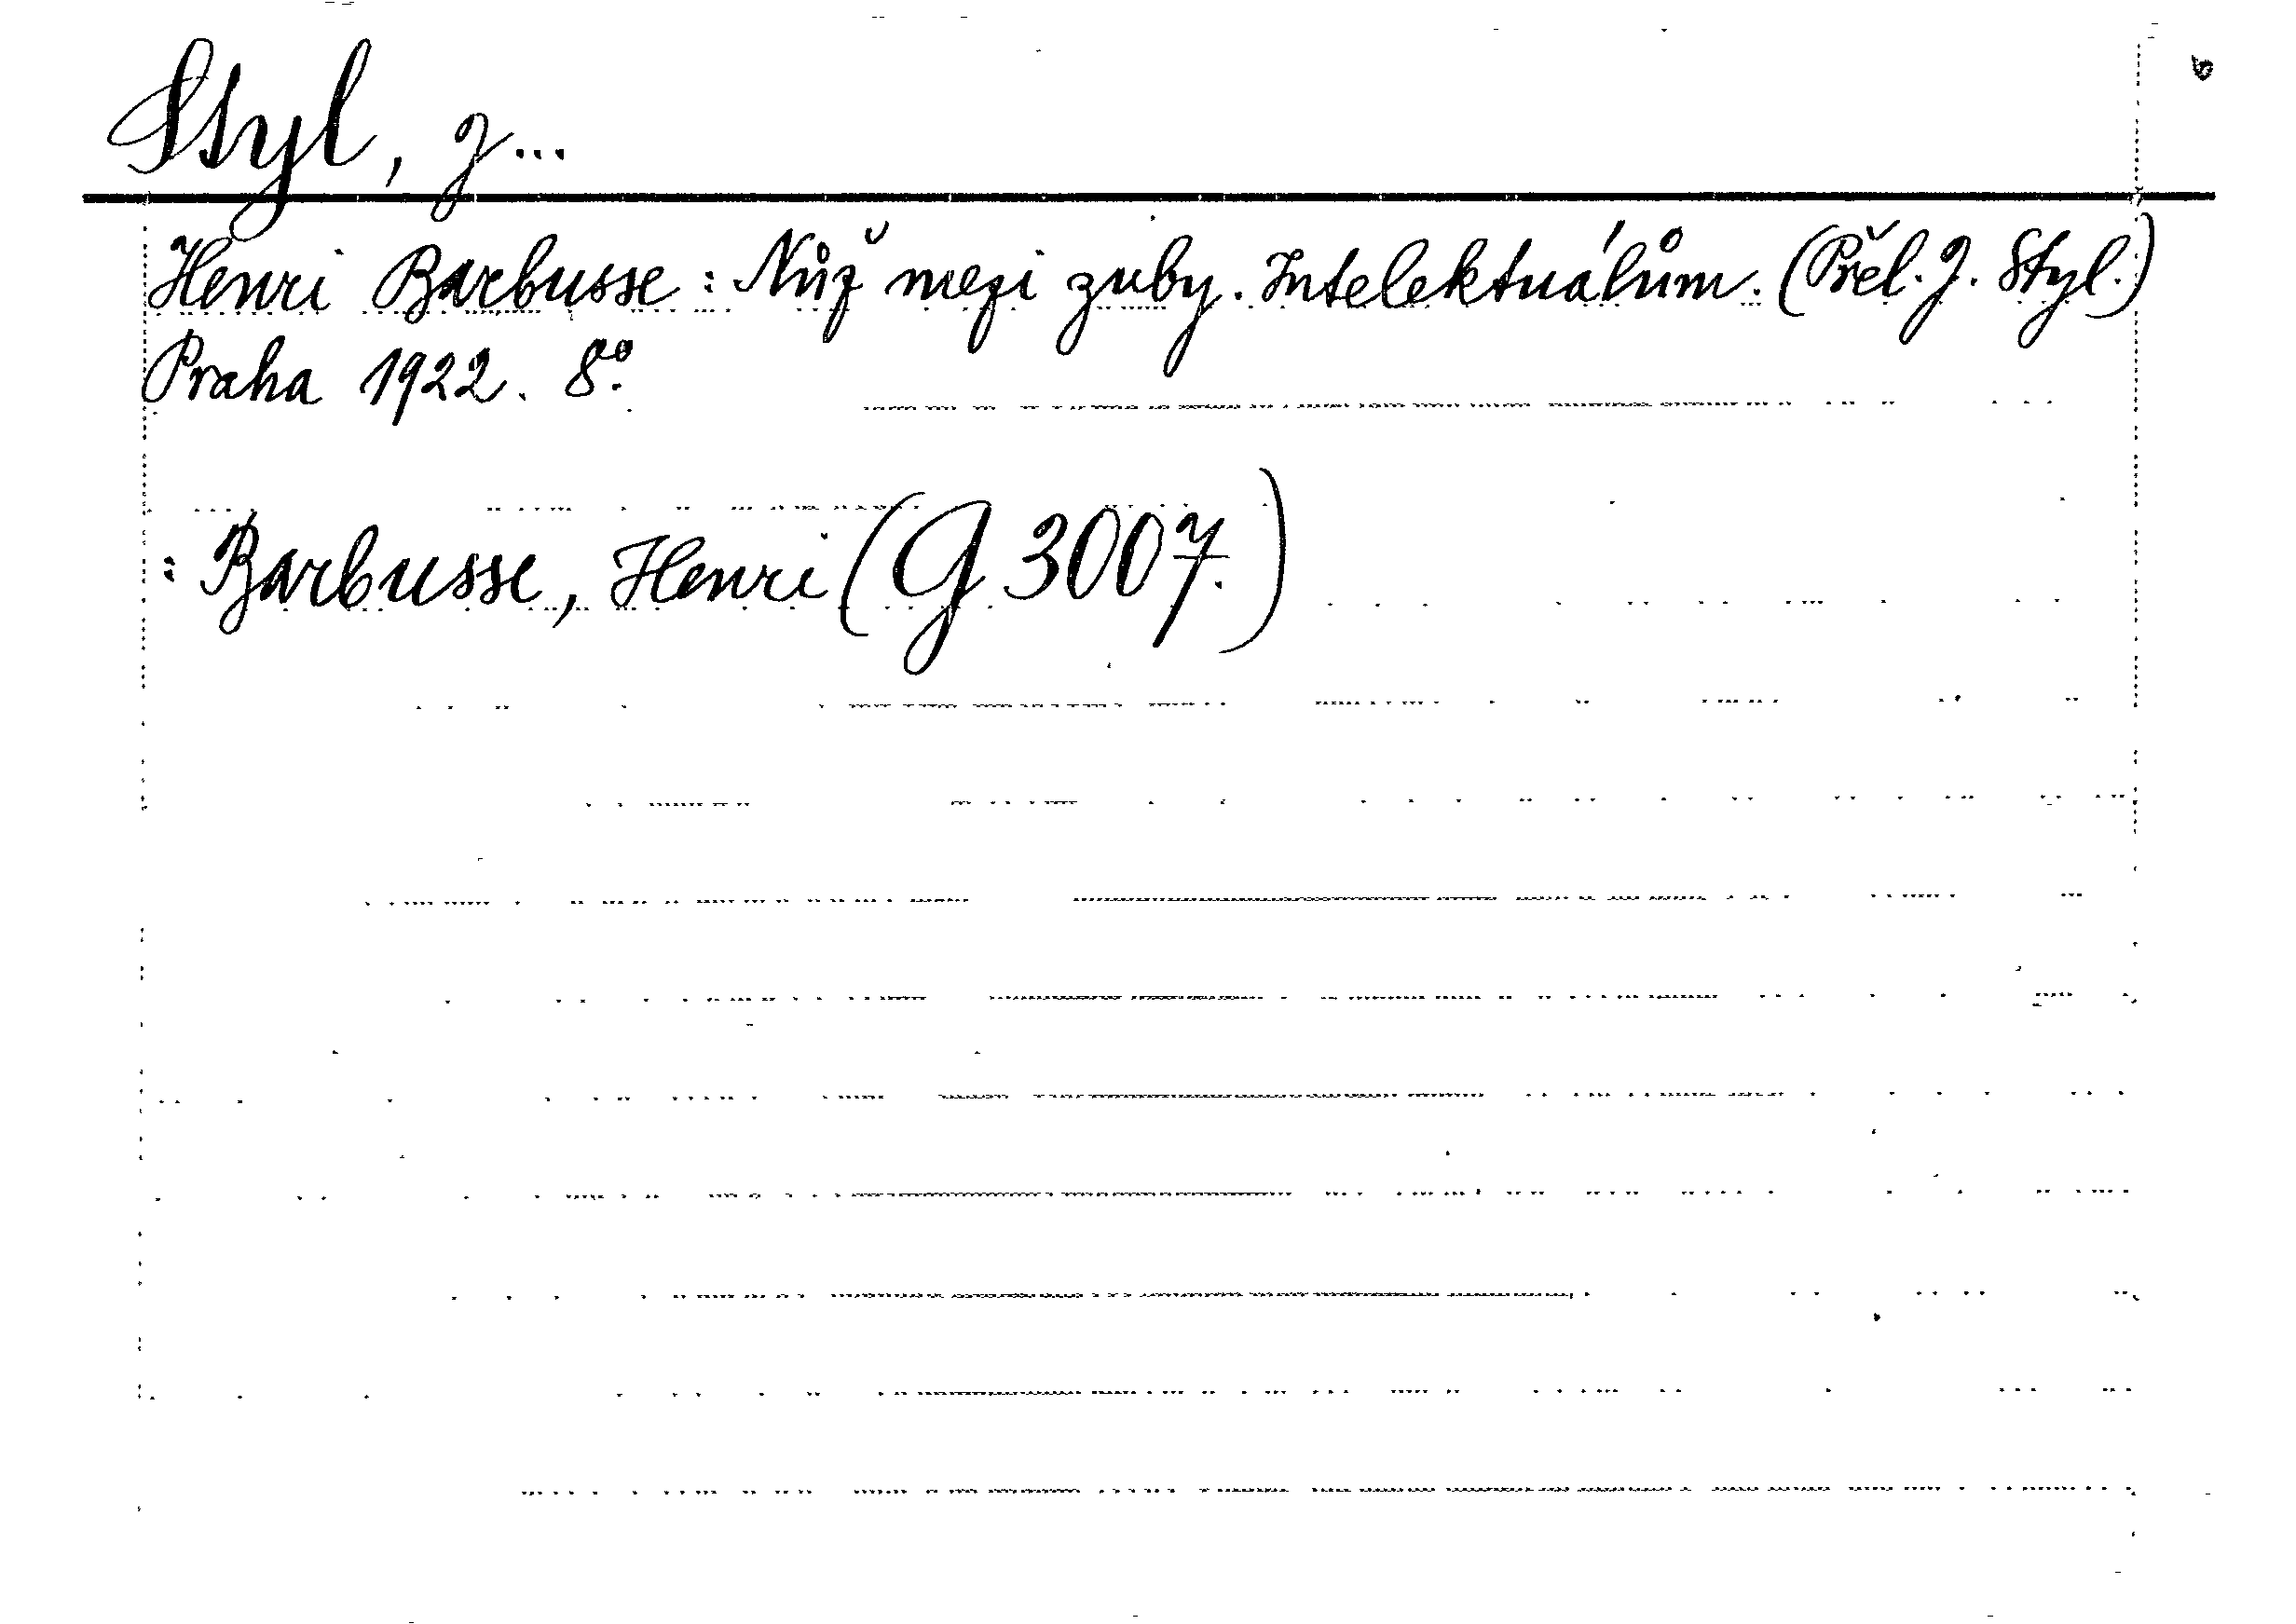 Styl, J...
Henri Barbusse: Nůž mezi zuby. Intelektuálům. (Přel. J. Styl.)
Praha 1922. 8°.
: Barbusse, Henri (G 3007.)